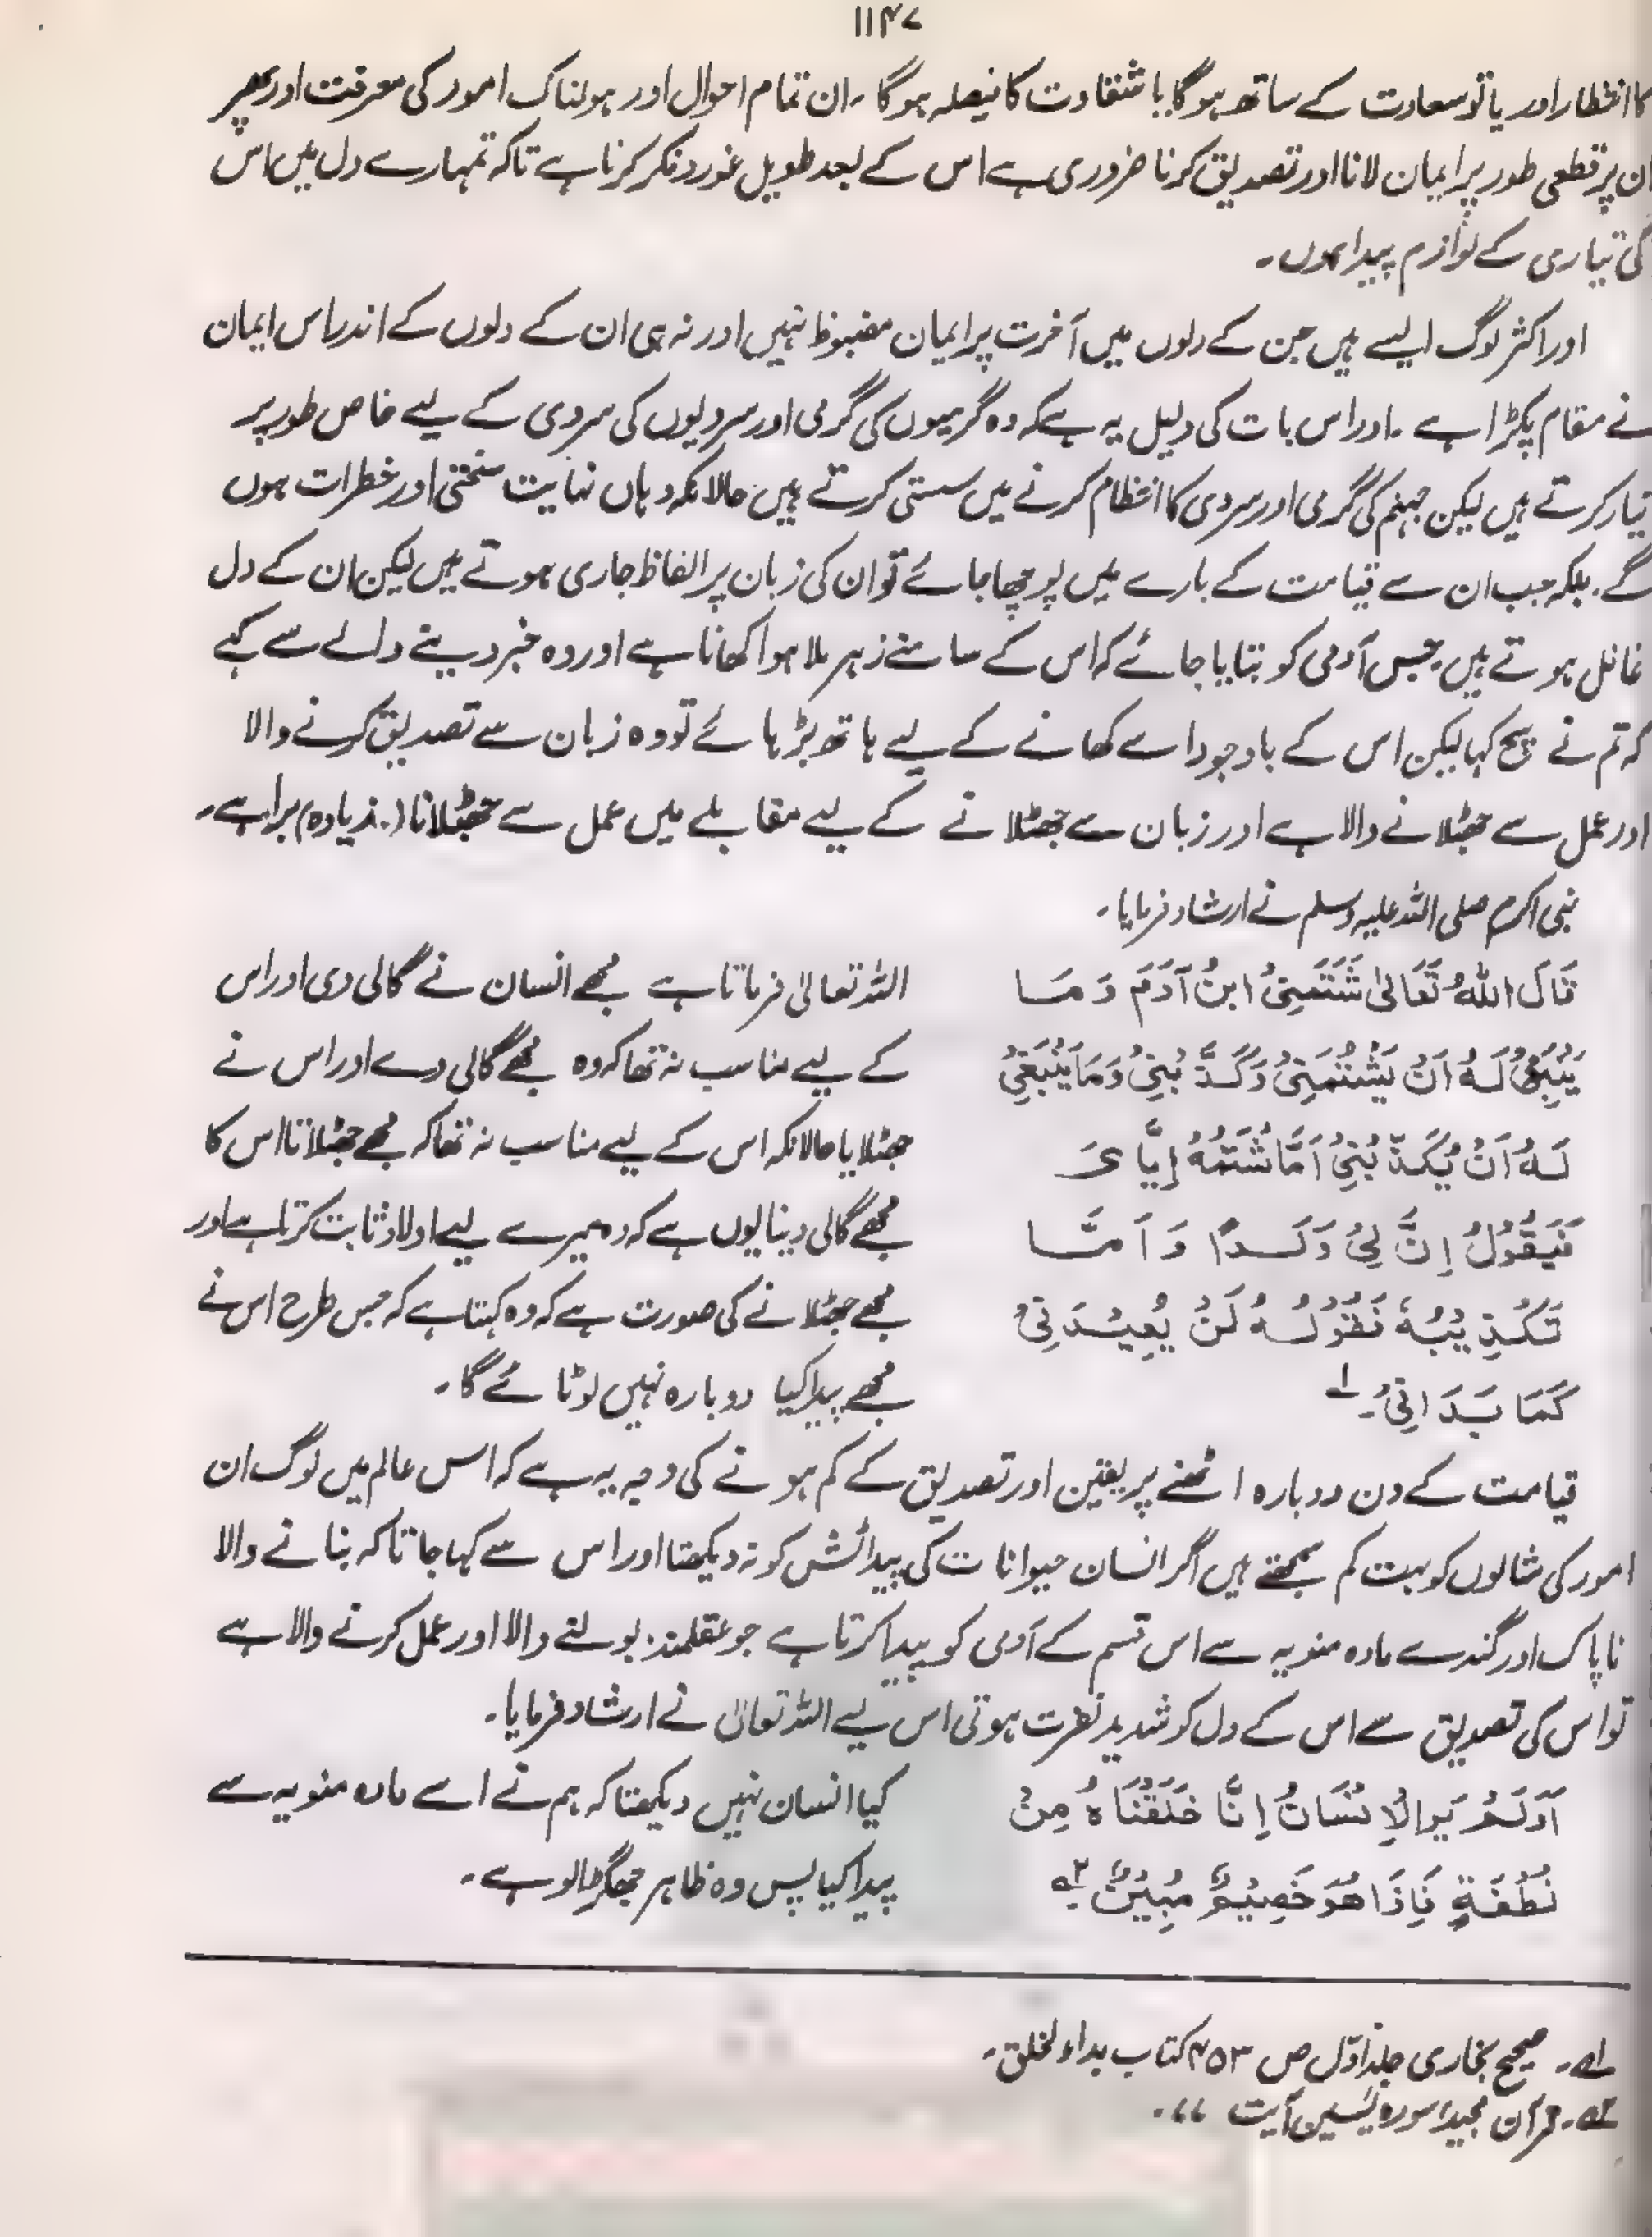 ۱۱۴۷
کا انتظار اور یا تو سعادت کے ساتھ ہوگا یا شقاوت کا فیصلہ ہوگا ۔ ان تمام احوال اور ہولناک امور کی معرفت اور پھر
ان پر قطعی طور پر ایمان لانا اور تصدیق کرنا ضروری ہے اس کے بعد طویل غور و فکر کرنا ہے تاکہ تمہارے دل میں اس
کی تیاری کے لوازم پیدا ہوں ۔
اور اکثر لوگ ایسے ہیں جن کے دلوں میں آخرت پر ایمان مضبوط نہیں اور نہ ہی ان کے دلوں کے اندر اس ایمان
نے مقام پکڑا ہے ۔ اور اس بات کی دلیل یہ ہے کہ وہ گرمیوں کی گرمی اور سردیوں کی سردی کے لیے خاص طور پر
تیار کرتے ہیں لیکن جہنم کی گرمی اور سردی کا انتظام کرنے میں سستی کرتے ہیں حالانکہ وہاں نہایت سختی اور خطرات ہوں
گے ۔ بلکہ جب ان سے قیامت کے بارے میں پوچھا جائے تو ان کی زبان پر الفاظ جاری ہوتے ہیں لیکن ان کے دل
غافل ہوتے ہیں ۔ جس آدمی کو بتایا جائے کہ اس کے سامنے زہر ملا ہوا کھانا ہے اور وہ خبر دینے والے سے کہے
کہ تم نے سچ کہا لیکن اس کے باوجود اسے کھانے کے لیے ہاتھ بڑہائے تو وہ زبان سے تصدیق کرنے والا
اور عمل سے جھٹلانے والا ہے اور زبان سے جھٹلانے کے لیے مقابلے میں عمل سے جھٹلانا (زیادہ) برا ہے ۔
نبی اکرم صلی اللہ علیہ وسلم نے ارشاد فرمایا ۔
قَالَ اللهُ تَعَالىٰ شَتَمَنِىْ ابْنُ آدَمَ وَمَا
يَنْبَغِىْ لَهُ اَنْ يَشْتُمَنِىْ وَكَذَّ بَنِىْ وَمَا يَنْبَغِىْ
لَهُ اَنْ يُكَذِّ بَنِىْ اَمَّا شَتْمُهُ اِيَّا ىَ
فَيَقُوْلُ اِنَّ لِىْ وَلَدًا وَ اَ مَّا
تَكْذِ يْبُهُ فَقَوْلُهُ لَنْ يُعِيْدَ نِىْ
كَمَا بَدَ انِىْ ۔ ؎۱
اللہ تعالیٰ فرماتا ہے مجھے انسان نے گالی دی اور اس
کے لیے مناسب نہ تھا کہ وہ مجھے گالی دے اور اس نے
جھٹلایا حالانکہ اس کے لیے مناسب نہ تھا کہ مجھے جھٹلاتا اس کا
مجھے گالی دینا یوں ہے کہ وہ میرے لیے اولاد ثابت کرتا ہے اور
مجھے جھٹلانے کی صورت ہے کہ وہ کہتا ہے کہ جس طرح اس نے
مجھے پیدا کیا دوبارہ نہیں لوٹائے گا ۔
قیامت کے دن دوبارہ اٹھنے پر یقین اور تصدیق کے کم ہونے کی وجہ یہ ہے کہ اس عالم میں لوگ ان
امور کی مثالوں کو بہت کم سمجھتے ہیں اگر انسان حیوانات کی پیدائش کو نہ دیکھتا اور اس سے کہا جاتا کہ بنانے والا
ناپاک اور گندے مادہ منویہ سے اس قسم کے آدمی کو پیدا کرتا ہے جو عقلمند، بولنے والا اور عمل کرنے والا ہے
تو اس کی تصدیق سے اس کے دل کو شدید نفرت ہوتی اس لیے اللہ تعالیٰ نے ارشاد فرمایا ۔
اَوَلَمْ يَرَ الْاِ نْسَانُ اِنَّا خَلَقْنَا هُ مِنْ
نُطْفَةٍ فَاِذَا هُوَ خَصِيْمٌ مُبِيْنٌ ؎۲
کیا انسان نہیں دیکھتا کہ ہم نے اسے مادہ منویہ سے
پیدا کیا پس وہ ظاہر جھگڑالو ہے ۔
؎۱۔ صحیح بخاری جلد اوّل ص ۴۵۳ کتاب بداء الخلق ۔
؎۲۔ قرآن مجید، سورہ یٰسین آیت ۷۷ ۔